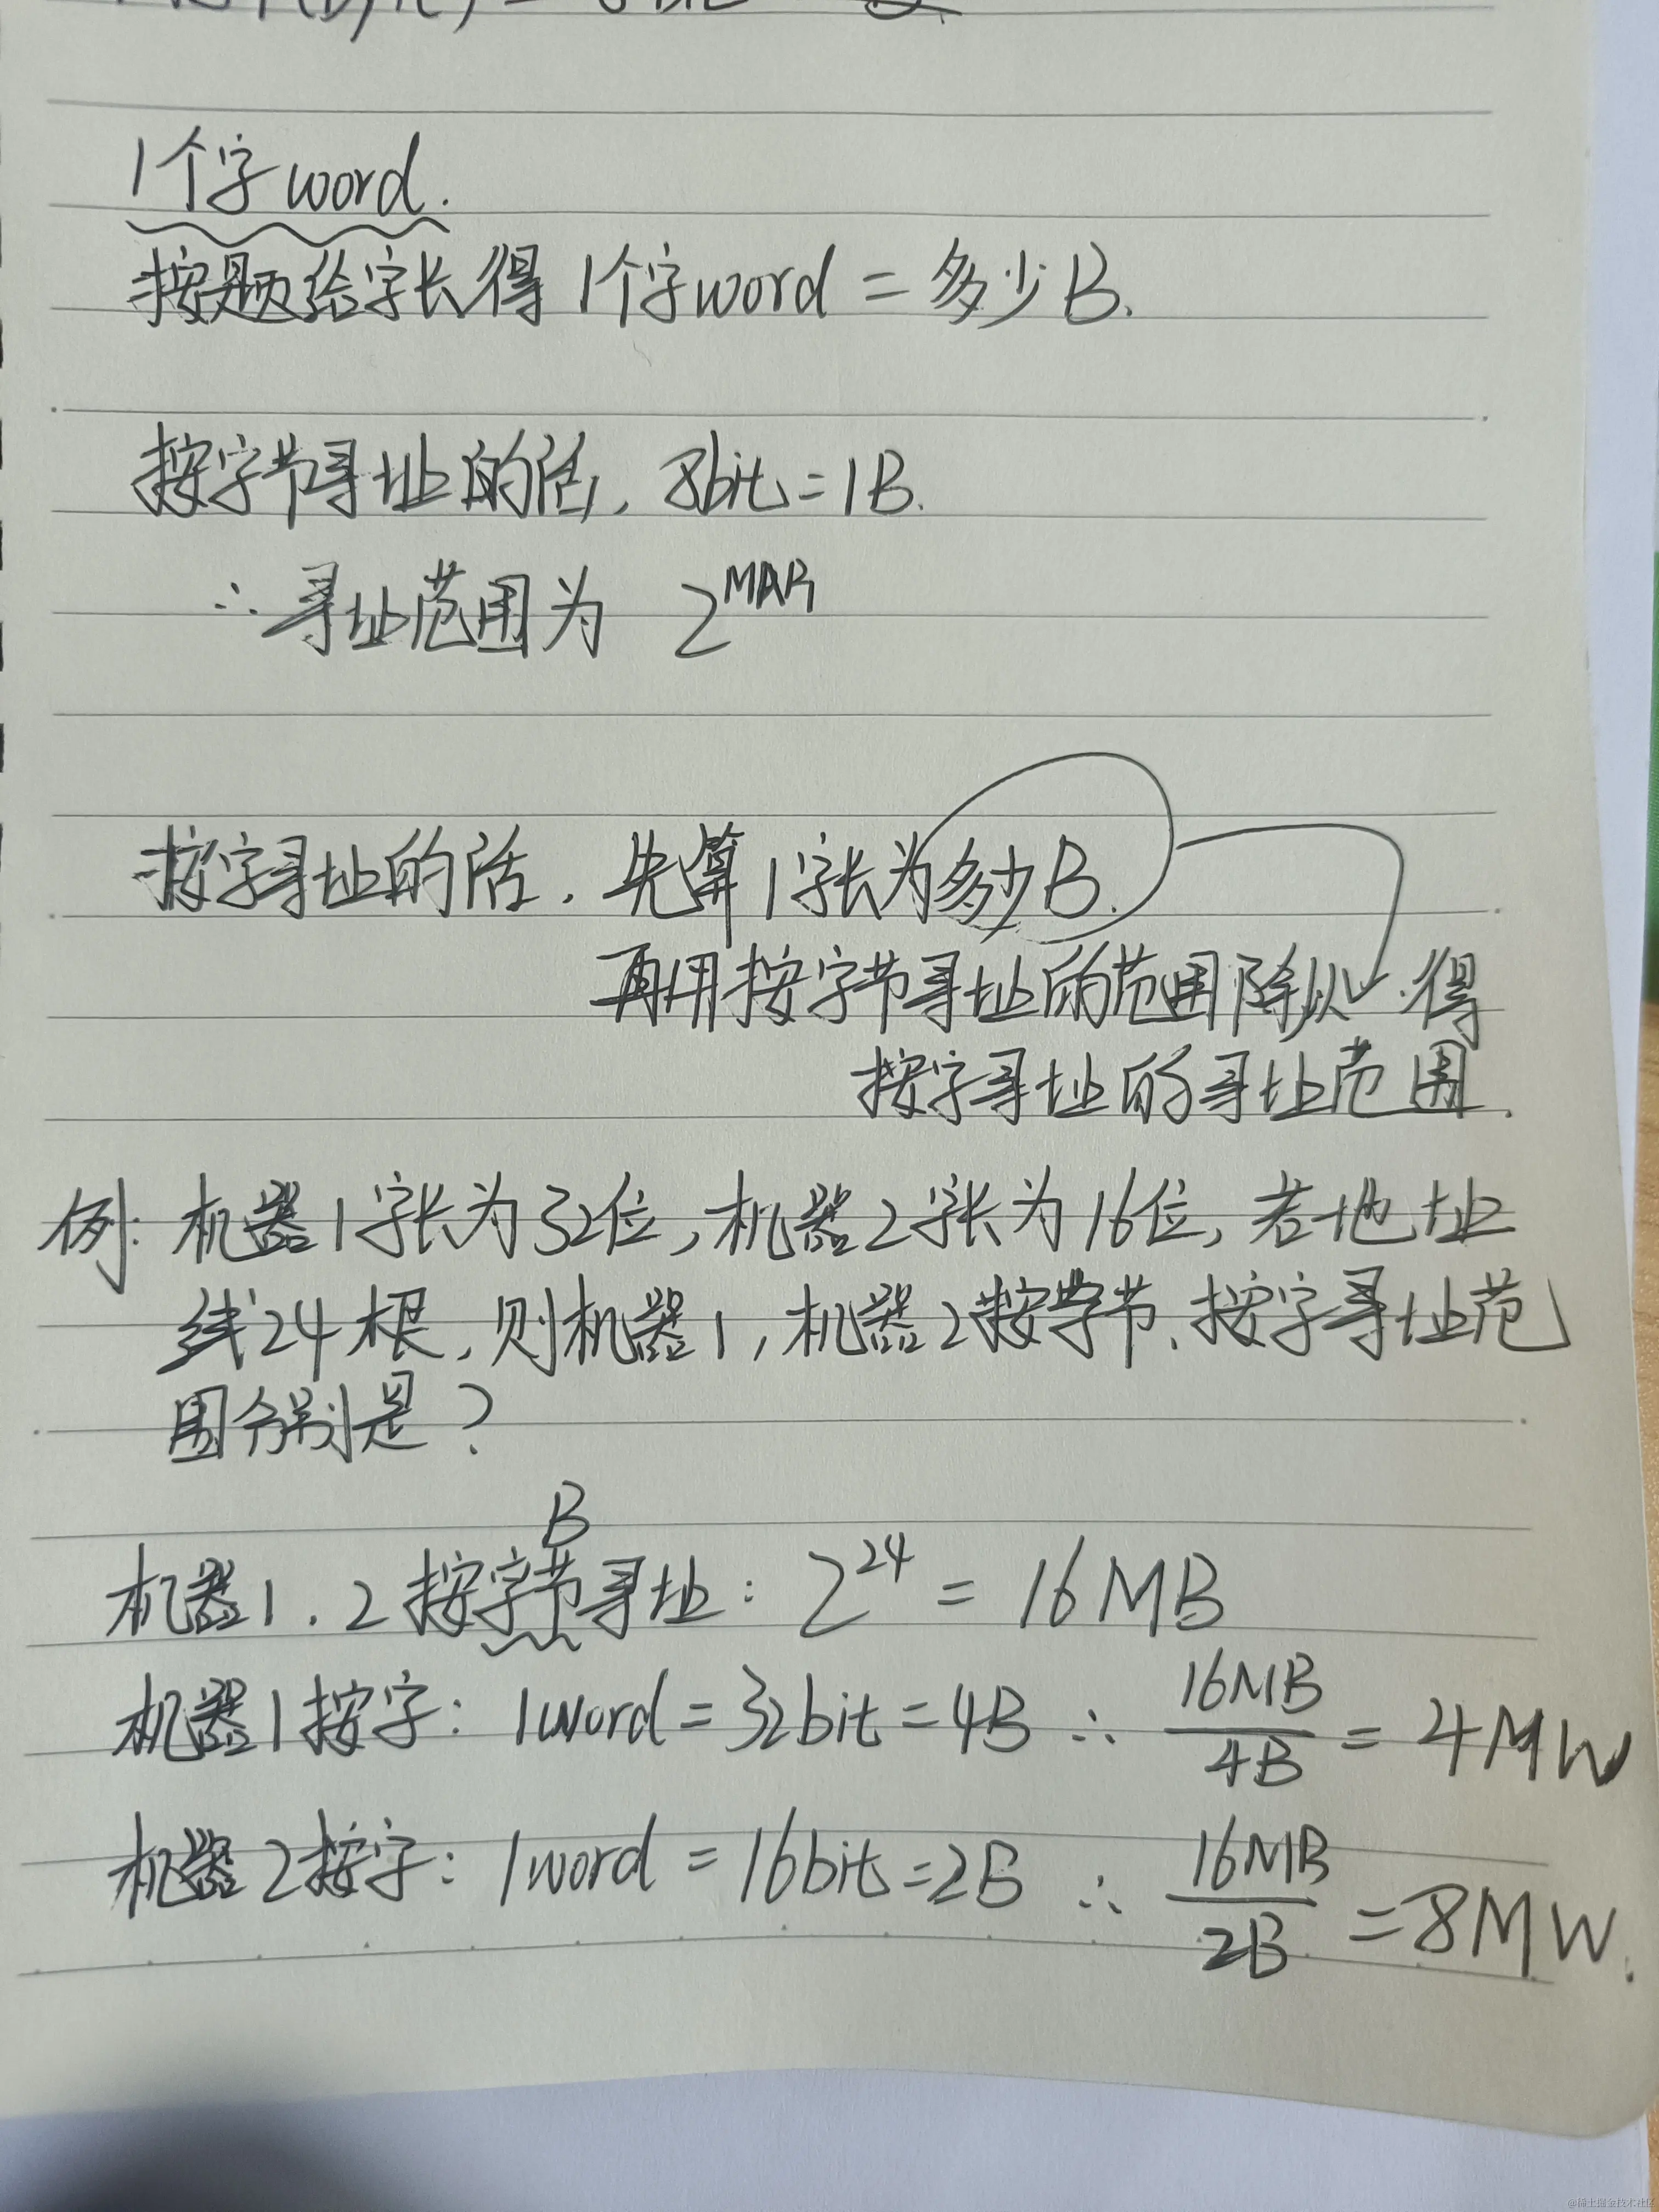 1个字word.
按题给字长得 1个字word = 多少B.
按字节寻址的话, 8bit=1B.
∴寻址范围为 2^MAR
按字寻址的话. 先算1字长为多少B.
再用按字节寻址的范围除以 . 得
按字寻址的寻址范围.
例: 机器1字长为32位,机器2字长为16位, 若地址
线24根, 则机器1, 机器2按字节、按字寻址范
围分别是?
B
机器1. 2按字节寻址: 2^24 = 16MB
机器1按字: 1word=32bit=4B ∴ 16MB/4B = 4MW
机器2按字: 1word = 16bit=2B ∴ 16MB/2B =8MW.
@稀土掘金技术社区